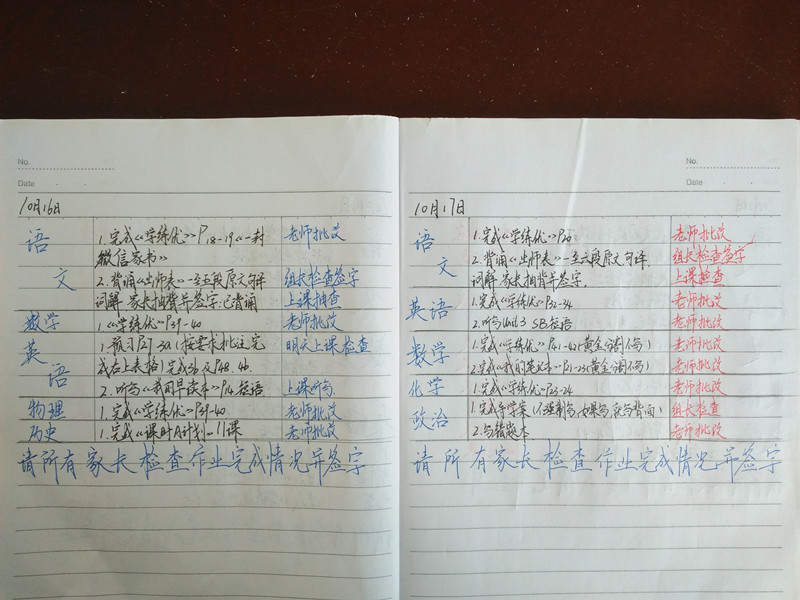 No.
Date
10月16日
语文
1.完成《学练优》P18-19《一封
微信家书》
老师批改
2.背诵《出师表》一至五段原文句译
词解 家长抽背并签字:已背诵
组长检查签字
上课抽查
数学
1.《学练优》P39-40
老师批改
英语
1.预习P29-30(按要求批注完
成后上表格)完成3b及P48.4b.
明天上课检查
2.听写《我用早读本》P14短语
上课听写
物理
1.完成《学练优》P39-40
老师批改
历史
1.完成《课时A计划》11课
老师批改
请所有家长检查作业完成情况并签字
No.
Date
10月17日
语文
1.完成《学练优》P20
老师批改
2.背诵《出师表》一至六段原文句译
词解 家长抽背并签字.
组长检查签字
上课抽查
英语
1.完成《学练优》P32-34
老师批改
2.听写Unit3 SB短语
老师批改
数学
1.完成《学练优》P41-42(黄金分割不写)
老师批改
2.完成《我用笔记本》P21-23(黄金分割不写)
老师批改
化学
1.完成《学练优》P23-24
老师批改
政治
1.完成导学案
组长检查
2.写错题本.
老师批改
请所有家长检查作业完成情况并签字